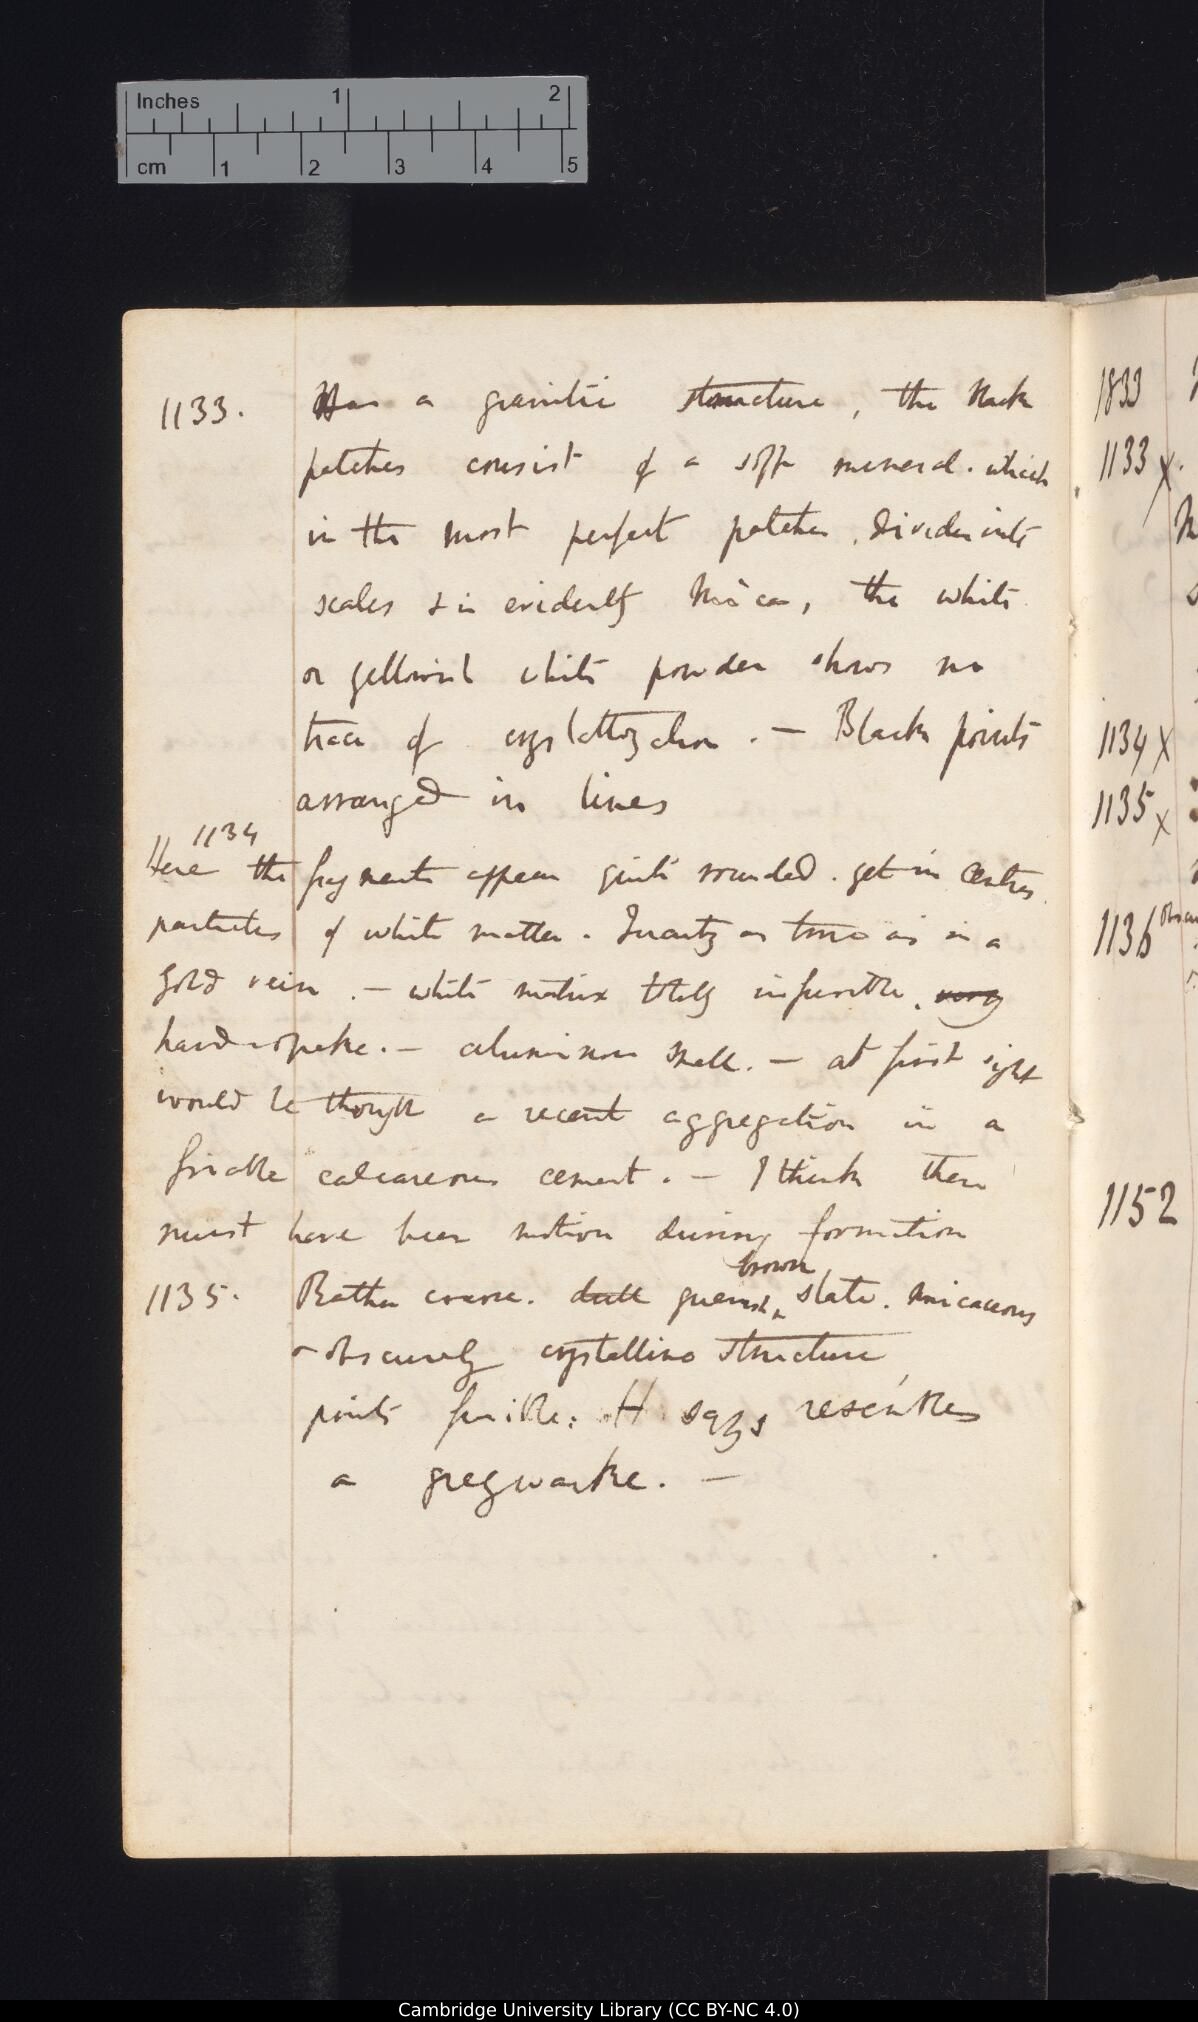 Inches 1 2
cm 1 2 3 4 5
1133. Has a granitic structure, the black
patches consist of a soft mineral. which
in the most perfect patches, divides into
scales & is evidently Mica, the white
or yellowish white powder shows no
trace of crystallization. — Black points
arranged in lines
1134
Here the fragments appear quite rounded. yet in centres
particles of white matter. Quartz as true as in a
gold vein. — white matrix totally infusible, very
hard & opake. — aluminous smell. — at first sight
would be thought a recent aggregation in a
friable calcareous cement. — I think there
must have been motion during formation
brown
1135. Rather coarse. dull greenish slate. micaceous
& obscurely crystalline structure
points fusible: H says resembles
a greywacke. —
1833
1133 x.
1134 x
1135 x
1136
1152
Cambridge University Library (CC BY-NC 4.0)